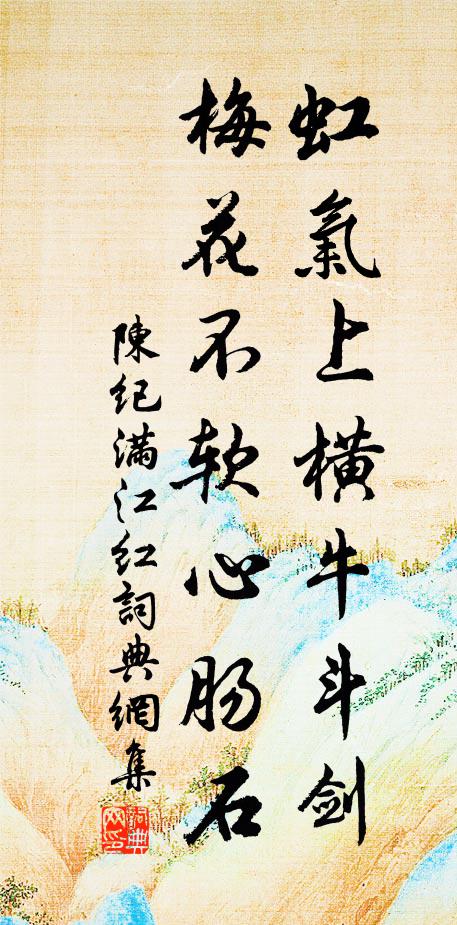 虹氣上橫牛斗劍
梅花不軟心腸石
陳紀滿江紅詞典網集
詞典
网印